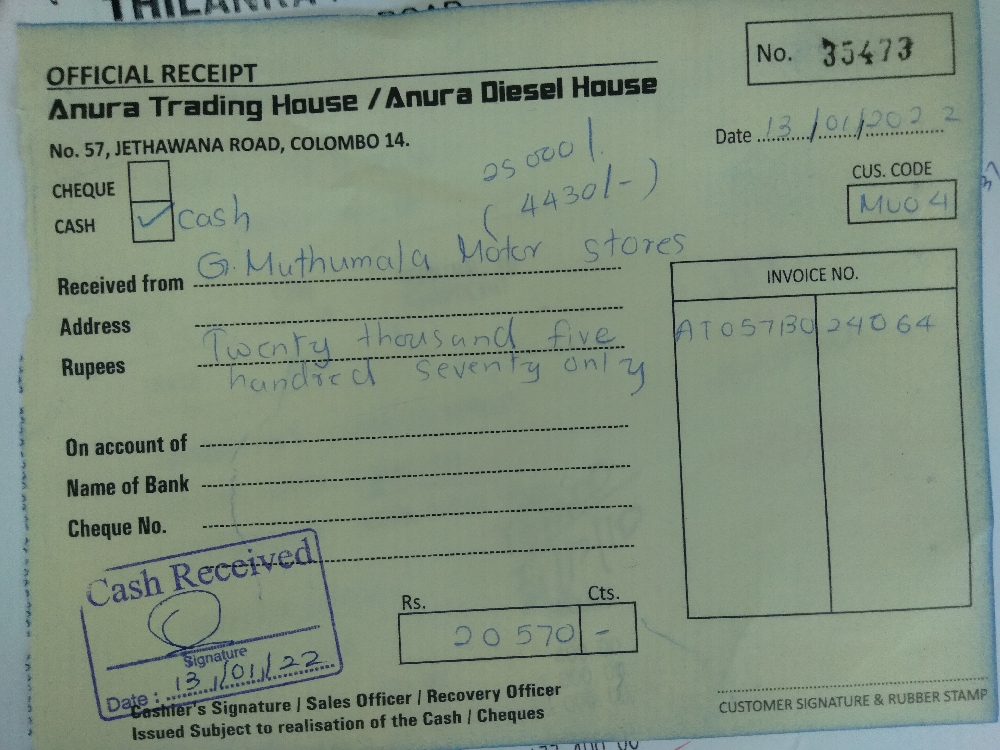 OFFICIAL RECEIPT
No. 35473
Anura Trading House / Anura Diesel House
No. 57, JETHAWANA ROAD, COLOMBO 14.
Date 13/01/2022
25000/.
(4430/-)
CHEQUE
CASH ✓ cash
CUS. CODE
MU04
Received from G. Muthumala Motor stores
INVOICE NO.
AT057130 24064
Address
Rupees Twenty thousand five
handred seventy only
On account of
Name of Bank
Cheque No.
Cash Received
Signature
Date : 13/01/22
Rs. Cts.
20 570 -
Cashier's Signature / Sales Officer / Recovery Officer
Issued Subject to realisation of the Cash / Cheques
CUSTOMER SIGNATURE & RUBBER STAMP